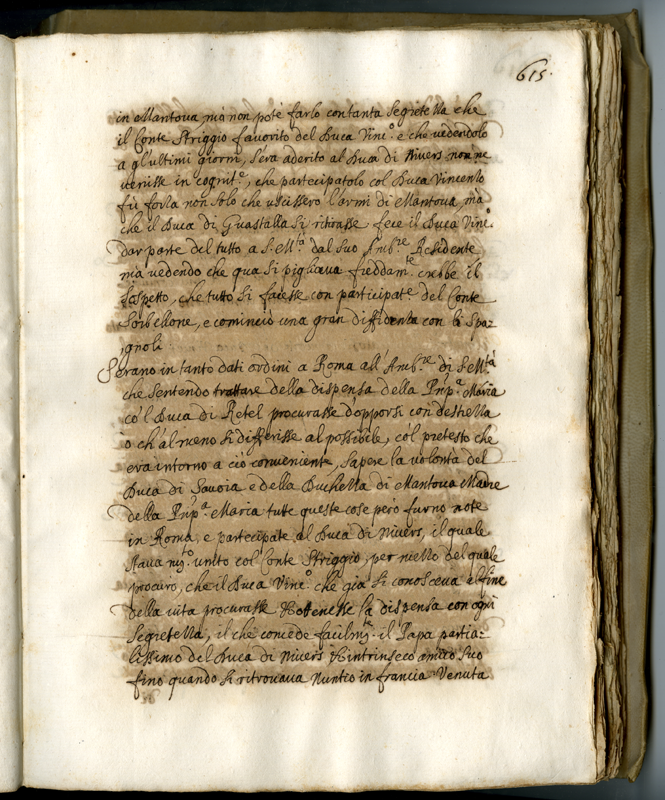 615.
in Mantova ma non potè farlo con tanta segretezza che
il Conte Striggio favorito del Duca Vinc.º e che vedendolo
a gl'ultimi giorni, s'era aderito al Duca di Nivers non ne
venisse in cognit.e, che partecipatolo col Duca Vincenzo
fù forza non solo che uscissero l'armi di Mantova, mà
che il Duca di Guastalla si ritirasse, fece il Duca Vinc.º
dar parte del tutto a S. M.tà dal suo Amb.re Residente
mà vedendo che qua si pigliava freddam.te crebbe il
sospetto, che tutto si facesse con participat.e del Conte
Sorbellone, e cominciò una gran diffidenza con li Spa=
gnoli.
S'erano in tanto dati ordini a Roma all'Amb.re di S. M.tà
che sentendo trattare della dispensa della Pnp.a Maria
co'l Duca di Retel procurasse d'opporsi con destrezza
ò ch'al meno si differisse al possibile, co'l pretesto che
era intorno a ciò conveniente, sapere la volontà del
Duca di Savoia e della Duchessa di Mantova Madre
della Pnp.a Maria tutte queste cose però furno note
in Roma, e partecipate al Duca di Nivers, il quale
stava unito col Conte Striggio, per mezzo del quale
procurò, che il Duca Vinc.º che già si conosceva al fine
della vita procurasse & ottenesse la dispensa con ogni
segretezza, il che concede facilm.te il Papa partia=
lissimo del Duca di Nivers & intrinseco amico suo
fino quando si ritrovava Nuntio in francia. Venuta